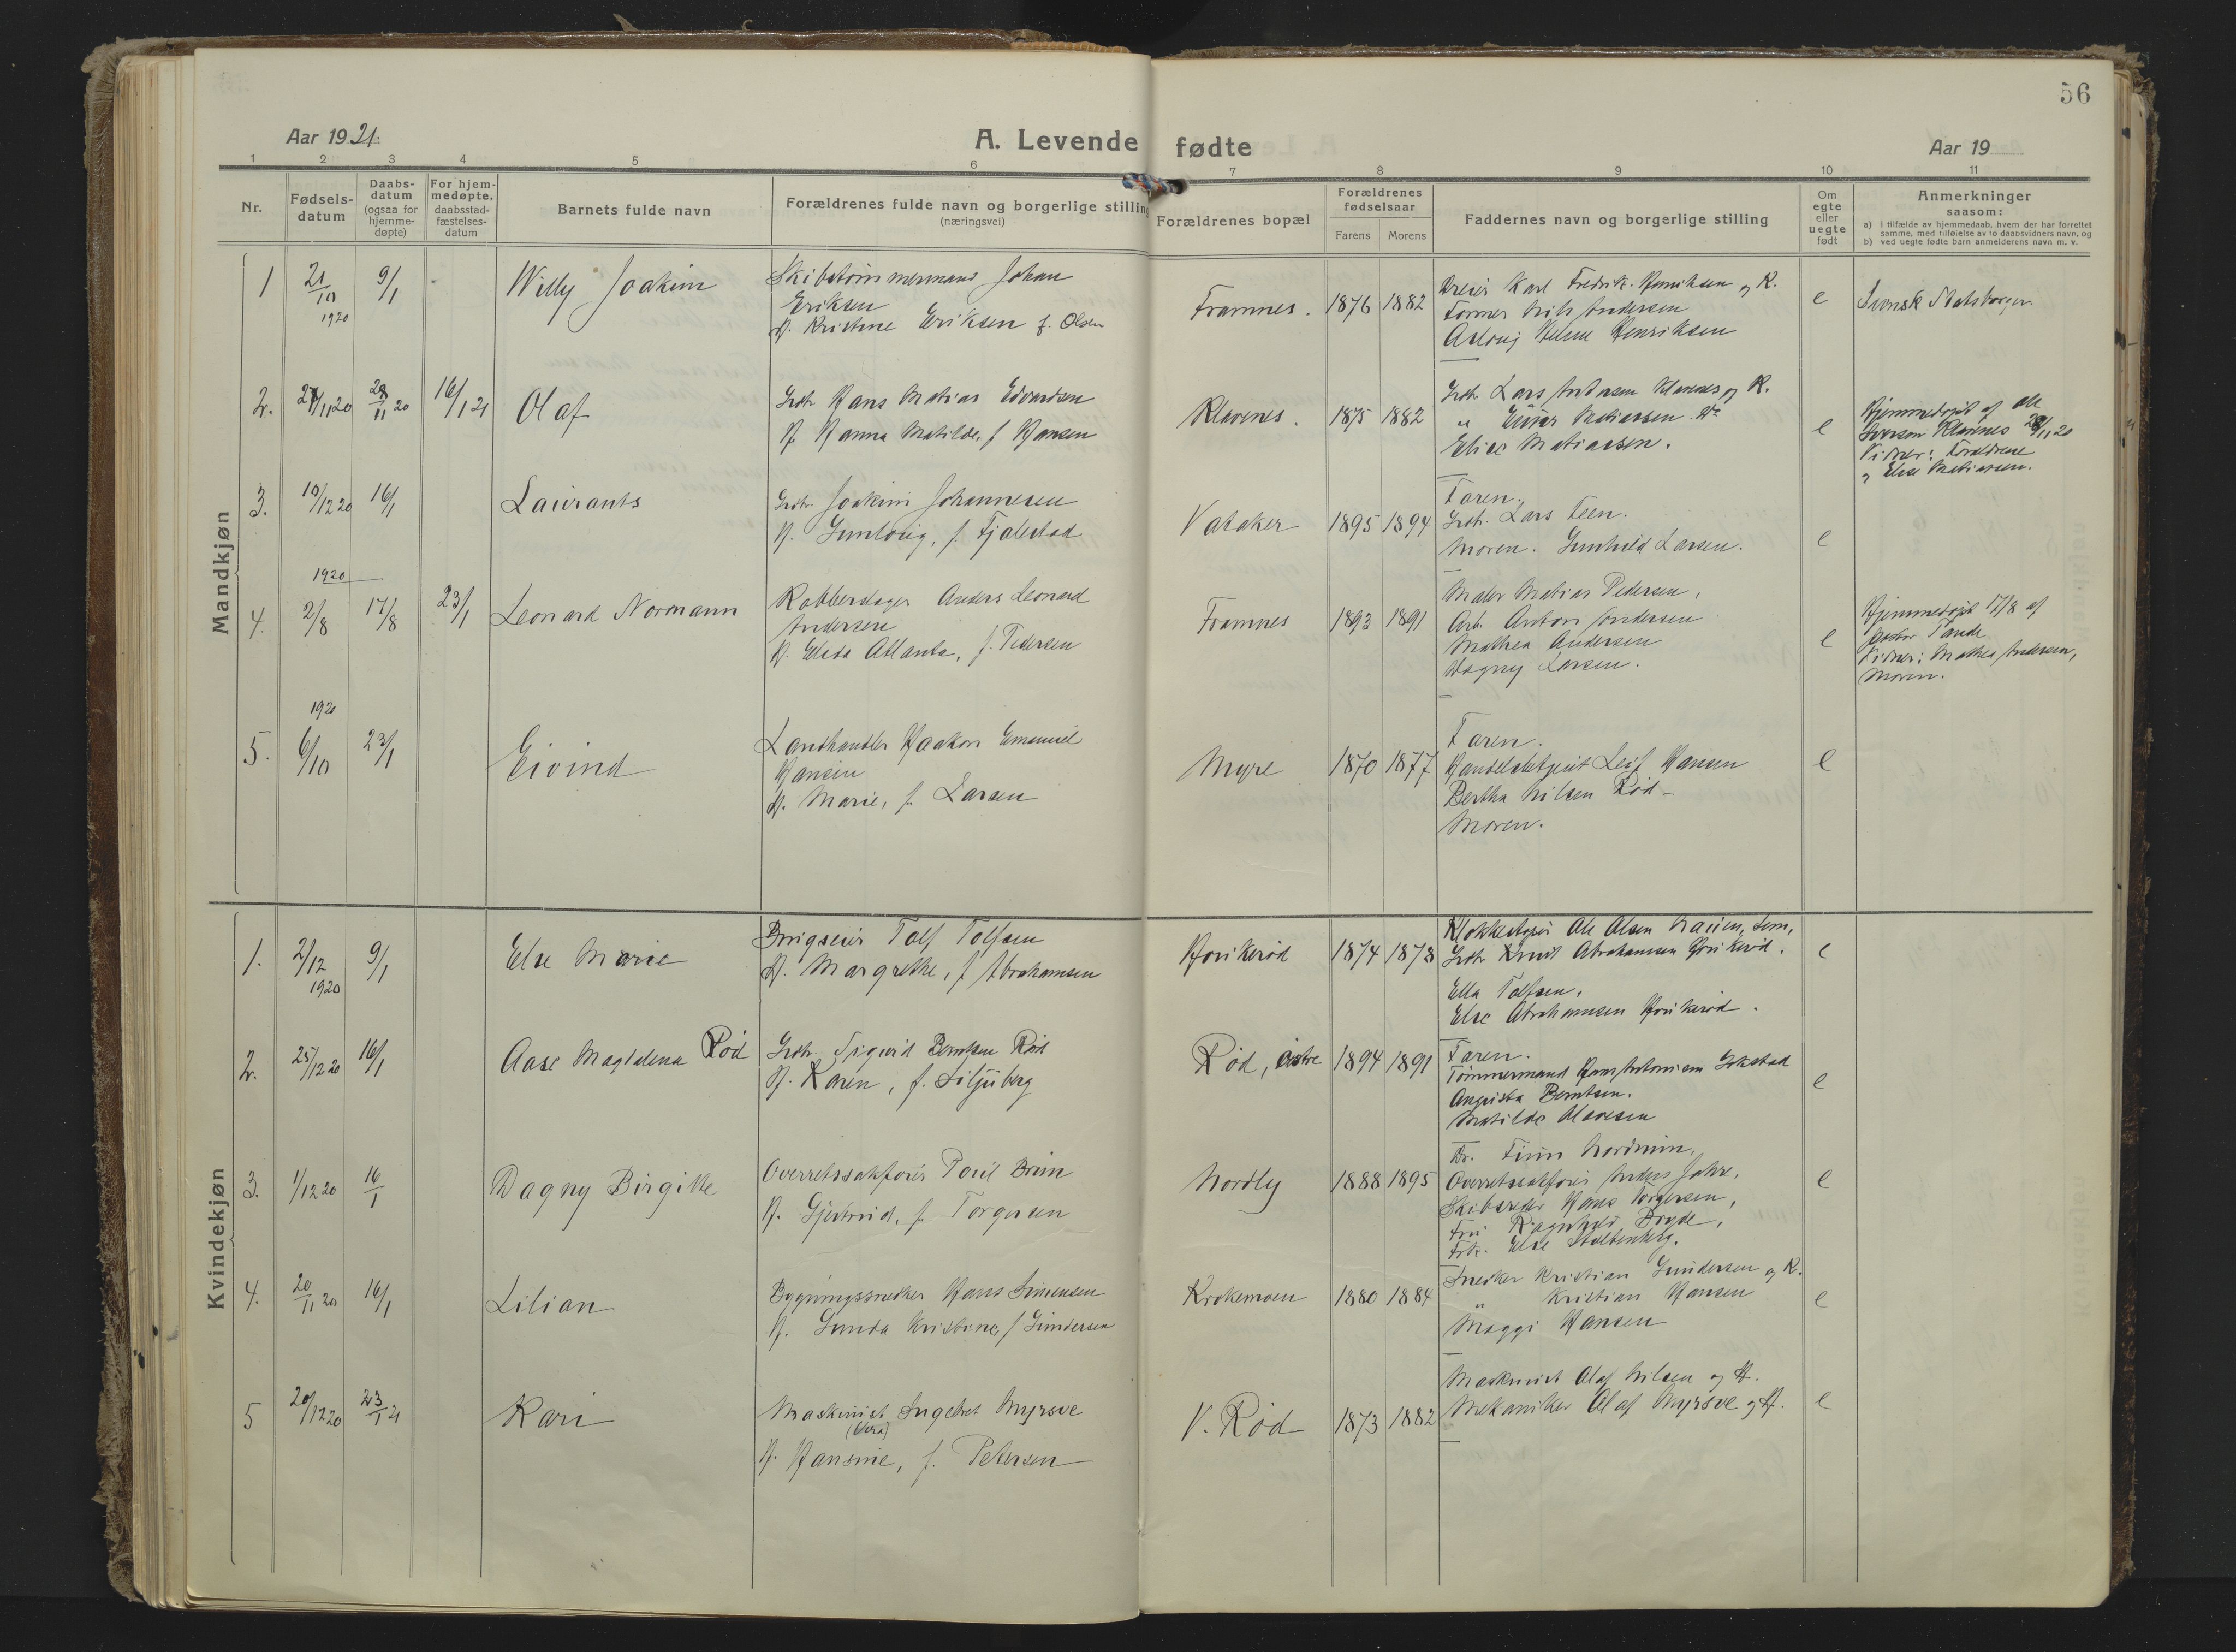 56
Aar 1921.
A. Levende fødte
Aar 19
1 2 3 4 5 6 7 8 9 10 11
Nr.
Fødsels-
datum
Daabs-
datum
(ogsaa for
hjemme-
døpte)
For hjem-
medøpte,
daabsstad-
fæstelses-
datum
Barnets fulde navn
Forældrenes fulde navn og borgerlige stilling
(næringsvei)
Forældrenes bopæl
Forældrenes
fødselsaar
Farens Morens
Faddernes navn og borgerlige stilling
Om
egte
eller
uegte
født
Anmerkninger
saasom:
a) i tilfælde av hjemmedaab, hvem der har forrettet
samme, med tilføielse av to daabsvidners navn, og
b) ved uegte fødte barn anmelderens navn m. v.
Mandkjøn
1 21/10 1920 9/1 Willy Joakim
Skibstømmermand Johan
Eriksen
H. Kristine Eriksen f. Olsen
Framnes. 1876 1882
Karl Fredrik Henriksen og K.
Nils Andersen
Henriksen
e
Svensk Statsborger.
2. 11 20 28/11 20 16/1 21 Olaf
Grdbr. Hans Matias Edvardsen
H. Hanna Matilde, f Hansen
Klavenes. 1875 1882
Grdbr. Lars Andersen Klavenes og K.
" Einar Matiassen
Elise Matiassen.
e
Hjemmedøpt af Ole
Iverson Klavenes 28/11 20
Vidner: Forældrene
og Elise Matiassen.
3. 10/12 20 16/1 Laurants
Grdbr. Joakim Johannesen
H. Gunborg, f. Fjalestad
Vataker 1895 1894
Faren.
Grdbr. Lars Feen.
Moren. Gunhild Larsen.
e
4. 1920 2/8 17/8 23/1 Leonard Normann
Kobberslager Anders Leonard
Andersen
H. Elida Atlanta, f. Pedersen
Framnes 1893 1891
Maler Matias Pedersen,
Arb. Anton Andersen
Mathea Andersen
Dagny Larsen.
e
Hjemmedøpt 17/8 af
pastor Tande
Vidner: Mathea Andersen,
Moren.
5. 1920 6/10 23/1 Eivind
Landhandler Haakon Emanuel
Hansen
H. Marie, f. Larsen
Myre 1870 1877
Faren.
Handelsbetjent Leif Hansen
Bertha Nilsen Rød -
Moren.
e
Kvindekjøn
1. 2/12 1920 9/1 Else Marie
Brugseier Tolf Tolfsen
H. Margrethe, f Abrahamsen
Haukerød 1874 1873
Ole Olsen Nauen, Sem,
Grdbr Knut Abrahamsen Haukerød.
Ella Tolfsen,
Else Abrahamsen Haukerød.
e
2. 25/12 20 16/1 Aase Magdalena Rød
Grdbr. Sigurd Berntsen Rød
H. Karen, f. Liljeberg
Rød, østre 1894 1891
Faren.
Tømmermand Hans Antonisen Gokstad
Augusta Berntsen.
Matilde Olavesen
e
3. 1/12 20 16/1 Dagny Birgitte
Overretssakfører Poul Bruun
H. Gjertrud, f. Torgersen
Nordly 1888 1895
Dr. Finn Nordmun,
Overretssakfører Anders Jahre,
Skibsreder Hans Torgersen,
Fru Ragnhild Bryde,
Frk. Else Stoltenberg.
e
4. 20/11 20 16/1 Lilian
Bygningssnedker Hans Simensen
H. Gunda Kristine, f Gundersen
Krokemoen 1880 1884
Snedker Kristian Gundersen og K.
" Kristian Hansen
Maggi Hansen
e
5 20/12 20 23/1 21 Kari
Maskinist Ingebret Myrsve
H. Hansine, f. Petersen
V. Rød 1873 1882
Maskinist Olaf Nilsen og H.
Mekaniker Olaf Myrsve og H.
e